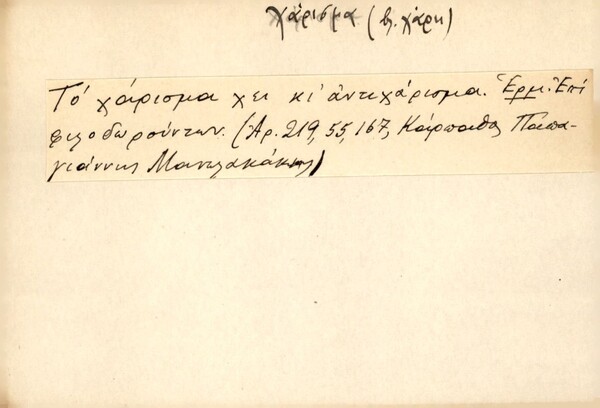 χάρισμα (βλ. χάρη)
Τό χάρισμα χει κι' ἀντιχάρισμα. Ἑρμ. Ἐπί
φιλοδωρούντων. (Ἀρ. 219, 55, 167, Κάρπαθος Παπα-
γιάννης Μανωλακάκης)